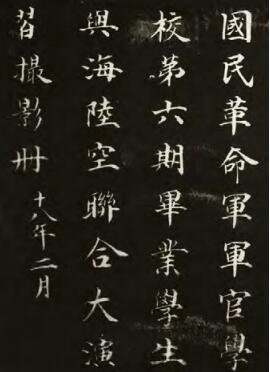 國民革命軍軍官學
校第六期畢業學生
與海陸空聯合大演
習撮影冊
十八年二月